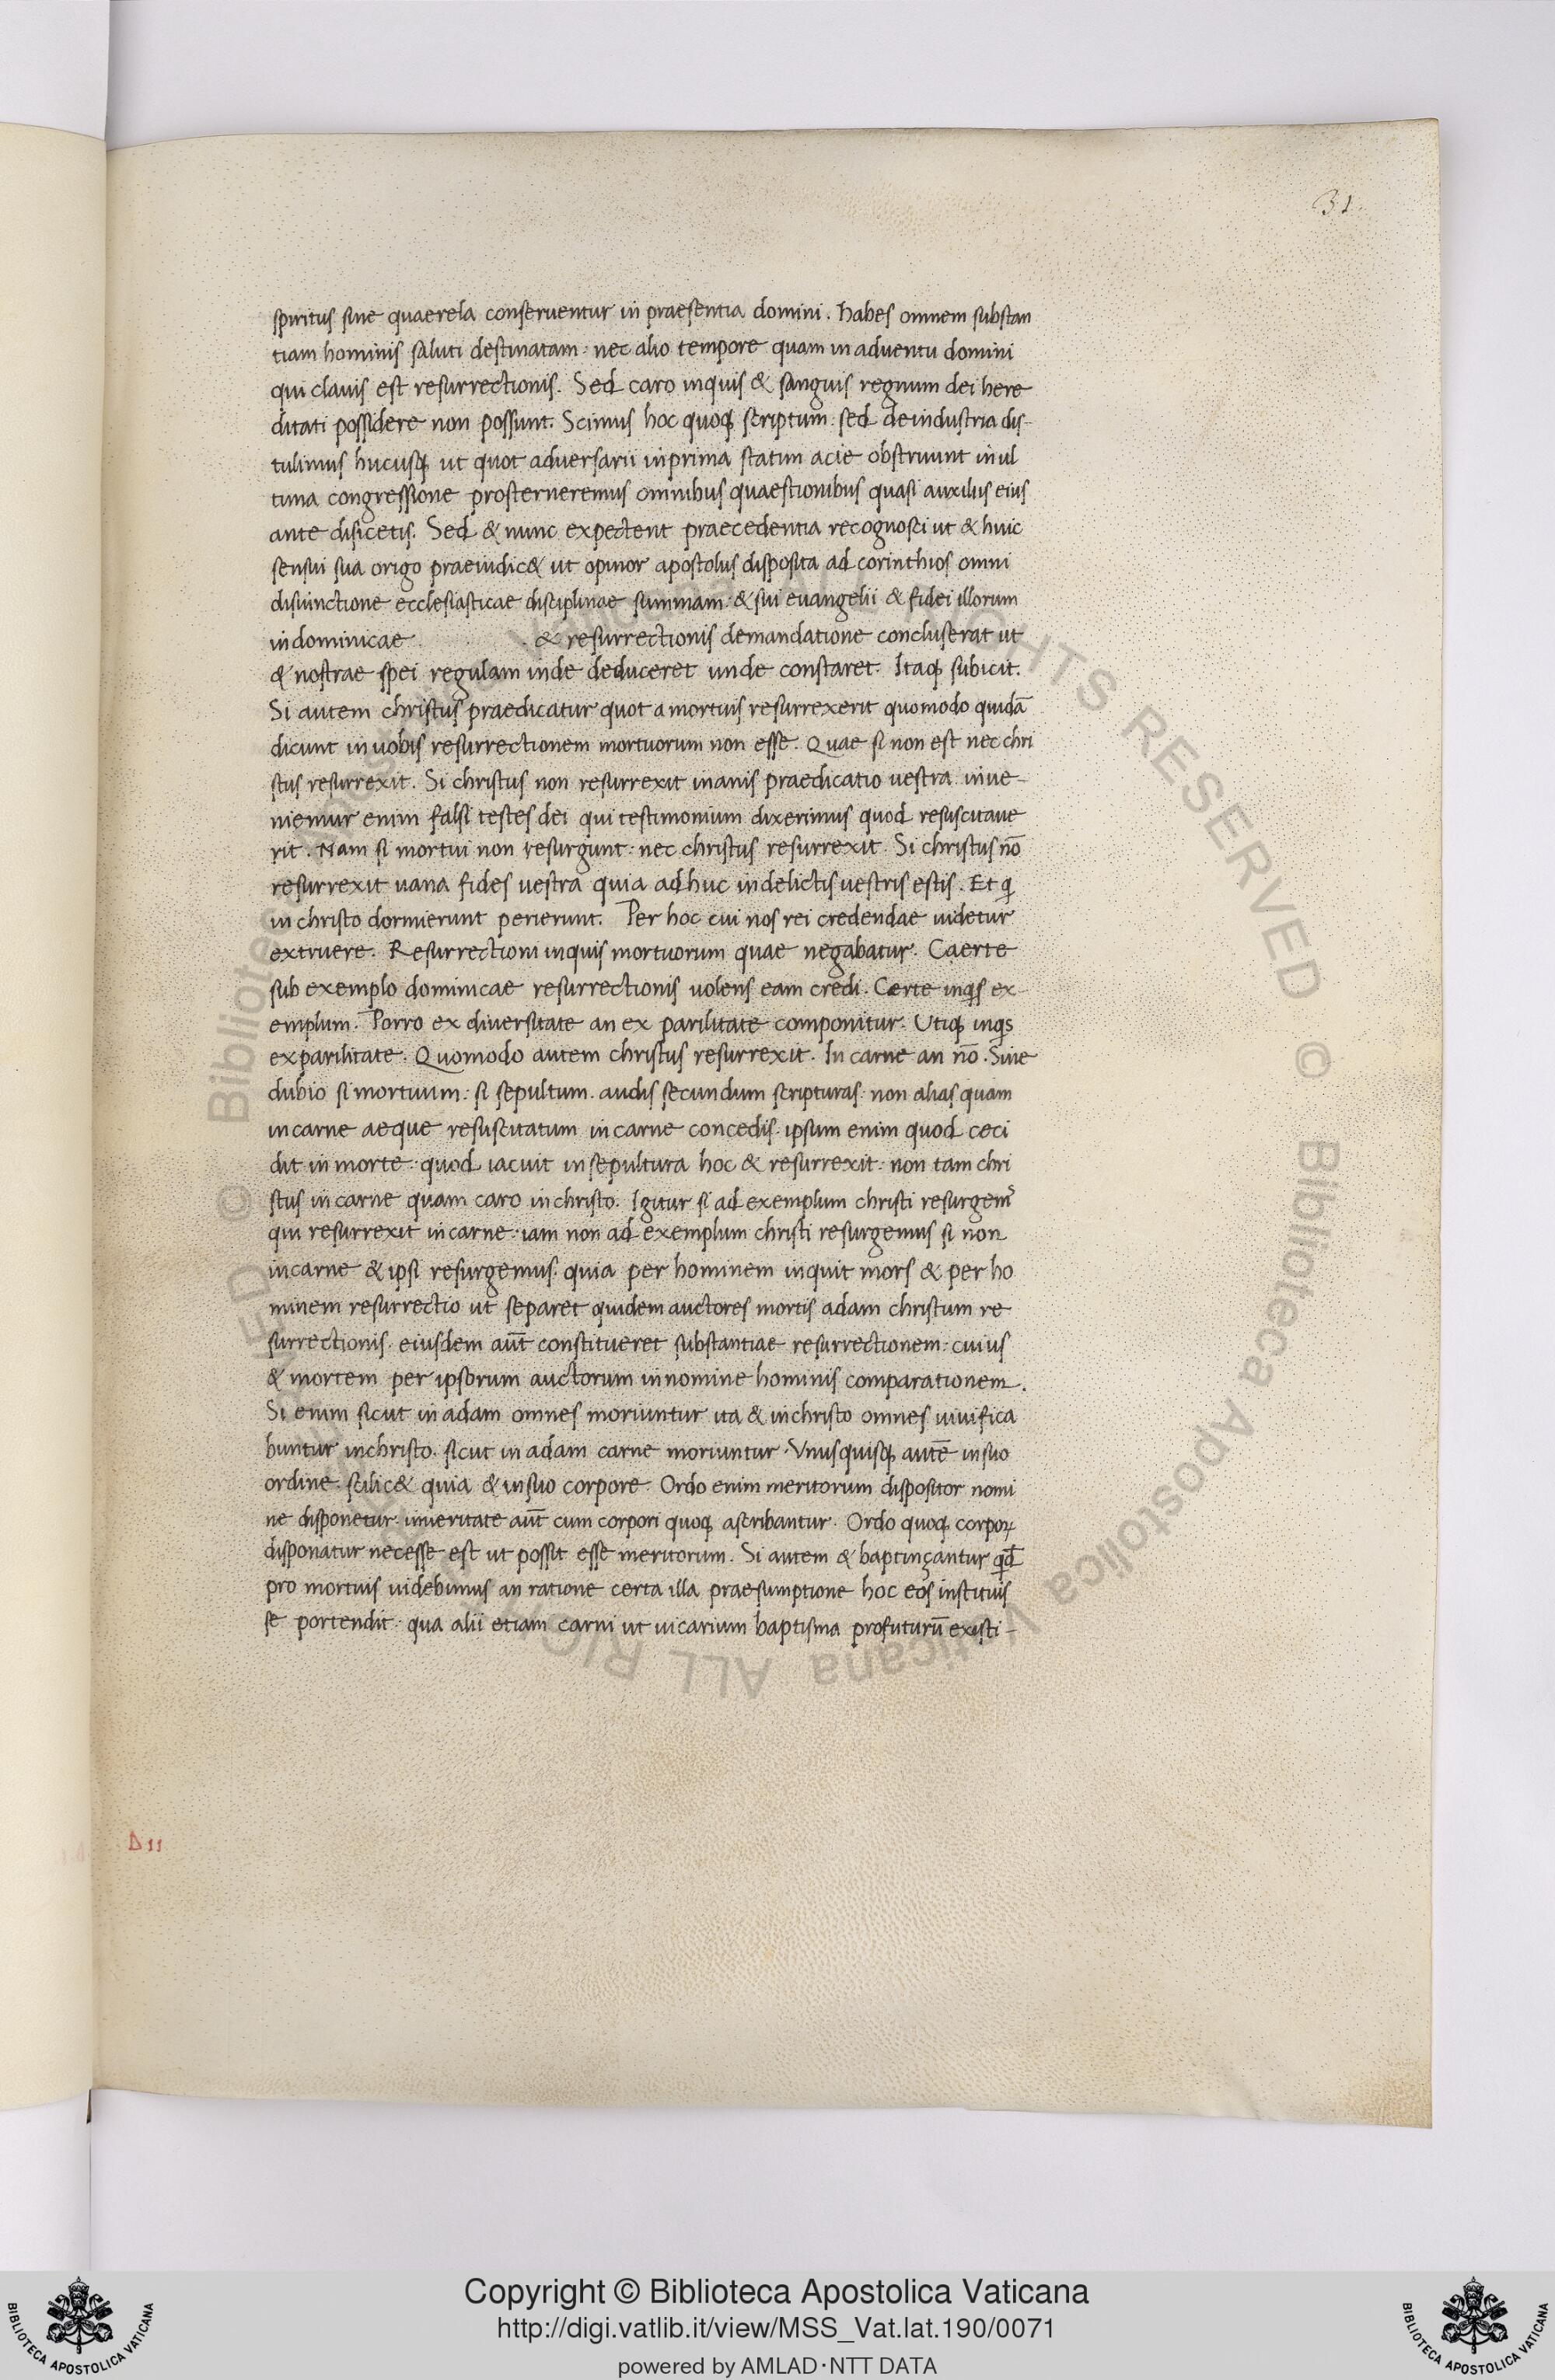 31
spiritus sine quaerela conseruentur in praesentia domini. habes omnem substan
tiam hominis saluti destinatam. nec alio tempore quam in aduentu domini
qui clauis est resurrectionis. Sed caro inquis & sanguis regnum dei here
ditati possidere non possunt. Scimus hoc quoq; scriptum. sed de industria dis-
tulimus hucusq; ut quot adversarii in prima statim acie obstruunt in ul
tima congressione prosterneremus omnibus quaestionibus quasi auxiliis eius
ante disicetis. Sed & nunc expectent praecedentia recognosci ut & huic
sensui sua origo praeiudic& ut opinor apostolus disposita ad corinthios omni
disiunctione ecclesiasticae disciplinae summam. & sui euangelii & fidei illorum
in dominicae & resurrectionis demandatione concluserat ut
& nostrae spei regulam inde deduceret unde constaret. Itaq; subicit.
Si autem christus praedicatur quot a mortuis resurrexerit quomodo quidā
dicunt in uobis resurrectionem mortuorum non esse. Quae si non est nec chri
stus resurrexit. Si christus non resurrexit inanis praedicatio uestra. inue-
niemur enim falsi testes dei qui testimonium dixerimus quod resuscitaue
rit. Nam si mortui non resurgunt. nec christus resurrexit. Si christus nō
resurrexit uana fides uestra quia adhuc in delictis uestris estis. Et q̄
in christo dormierunt perierunt. Per hoc cui nos rei credendae uidetur
extruere. Resurrectioni inquis mortuorum quae negabatur. Caerte
sub exemplo dominicae resurrectionis uolens eam credi. Certe inqis ex-
emplum. Porro ex diuersitate an ex parilitate componitur. Utiq; inqis
ex parilitate. Quomodo autem christus resurrexit. In carne an nō. Sine
dubio si mortuum. si sepultum. audis secundum scripturas. non alias quam
in carne aeque resuscitatum in carne concedis. ipsum enim quod ceci
dit in morte. quod iacuit in sepultura hoc & resurrexit. non tam chri
stus in carne quam caro in christo. Igitur si ad exemplum christi resurgem᾽
qui resurrexit in carne. iam non ad exemplum christi resurgemus si non
in carne & ipsi resurgemus. quia per hominem inquit mors & per ho
minem resurrectio ut separet quidem auctores mortis adam christum re
surrectionis. eiusdem aūt constitueret substantiae resurrectionem. cuius
& mortem per ipsorum auctorum in nomine hominis comparationem.
Si enim sicut in adam omnes moriuntur ita & in christo omnes uiuifica
buntur in christo. sicut in adam carne moriuntur. Vnusquisq; autē in suo
ordine. scilic& quia & in suo corpore. Ordo enim meritorum dispositor nomi
ne disponetur. inueritate aūt cum corpori quoq; ascribantur. Ordo quoq; corporꝝ
disponatur necesse est ut possit esse meritorum. Si autem & baptinçantur qd̄
pro mortuis uidebimus an ratione certa illa praesumptione hoc eos instituis
se portendit. qua alii etiam carni ut uicarium baptisma profuturū existi-
Copyright © Biblioteca Apostolica Vaticana
http://digi.vatlib.it/view/MSS_Vat.lat.190/0071
powered by AMLAD·NTT DATA